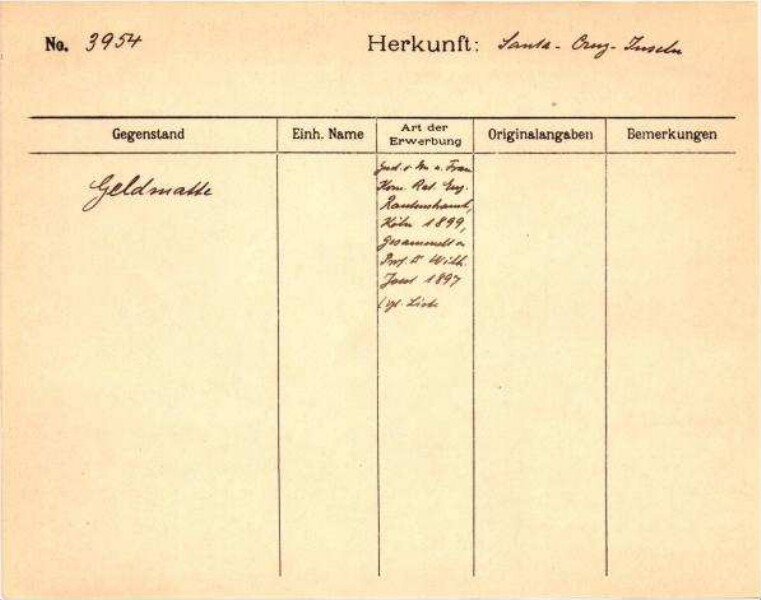 No. 3954
Herkunft: Santa-Cruz-Inseln
Gegenstand
Einh. Name
Art der Erwerbung
Originalangaben
Bemerkungen
Geldmatte
Frau
Kom. Rat. Eug.
Rautenstrauch,
Köln 1899,
gesammelt v.
Prof. Dr Wilh.
Joest 1897
Liste